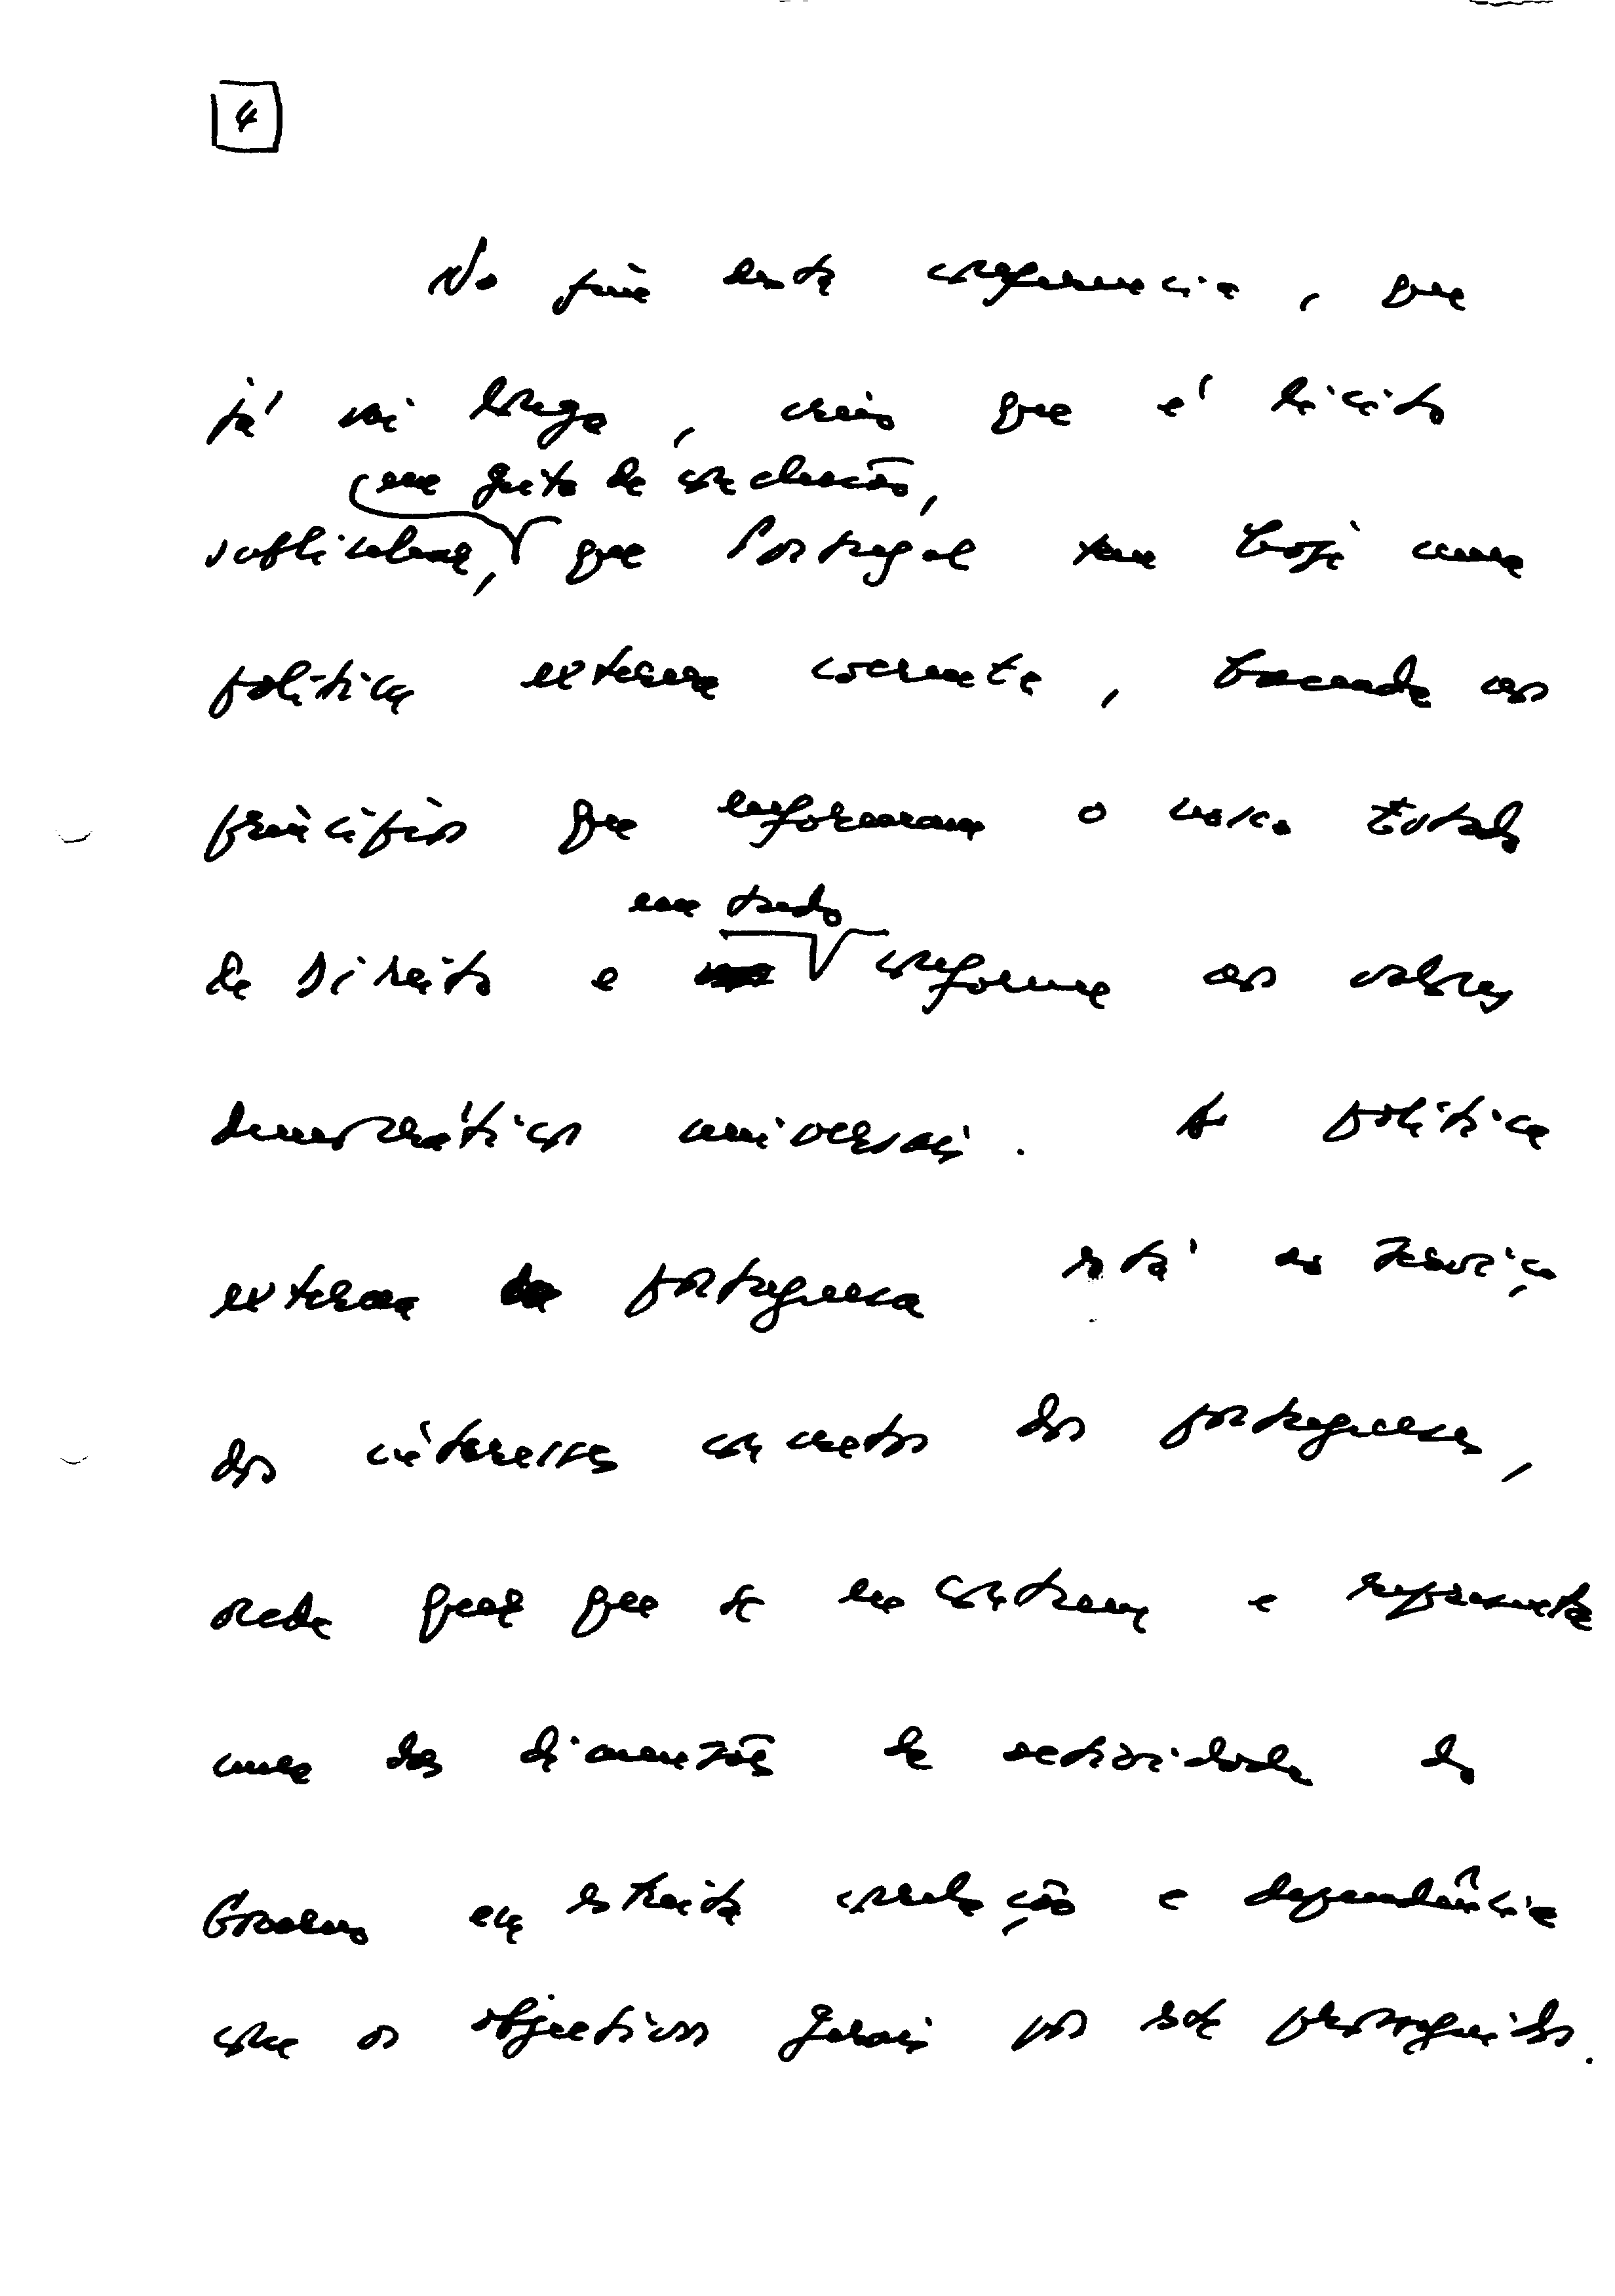 4
No fim desta conferência, que
já vai longa, creio que é lícito
em jeito de conclusão,
sublinhar, que Portugal tem hoje uma
política externa coerente, baseada nos
princípios que enformam o nosso Estado
em tudo
de Direito e conforme aos valores
democráticos universais. A política
externa portuguesa está ao serviço
dos interesses concretos dos portugueses,
onde quer que se encontrem e representa
uma das dimensões da actividade do
Governo em estreita correlação e dependência
com os objectivos gerais por este prosseguidos.